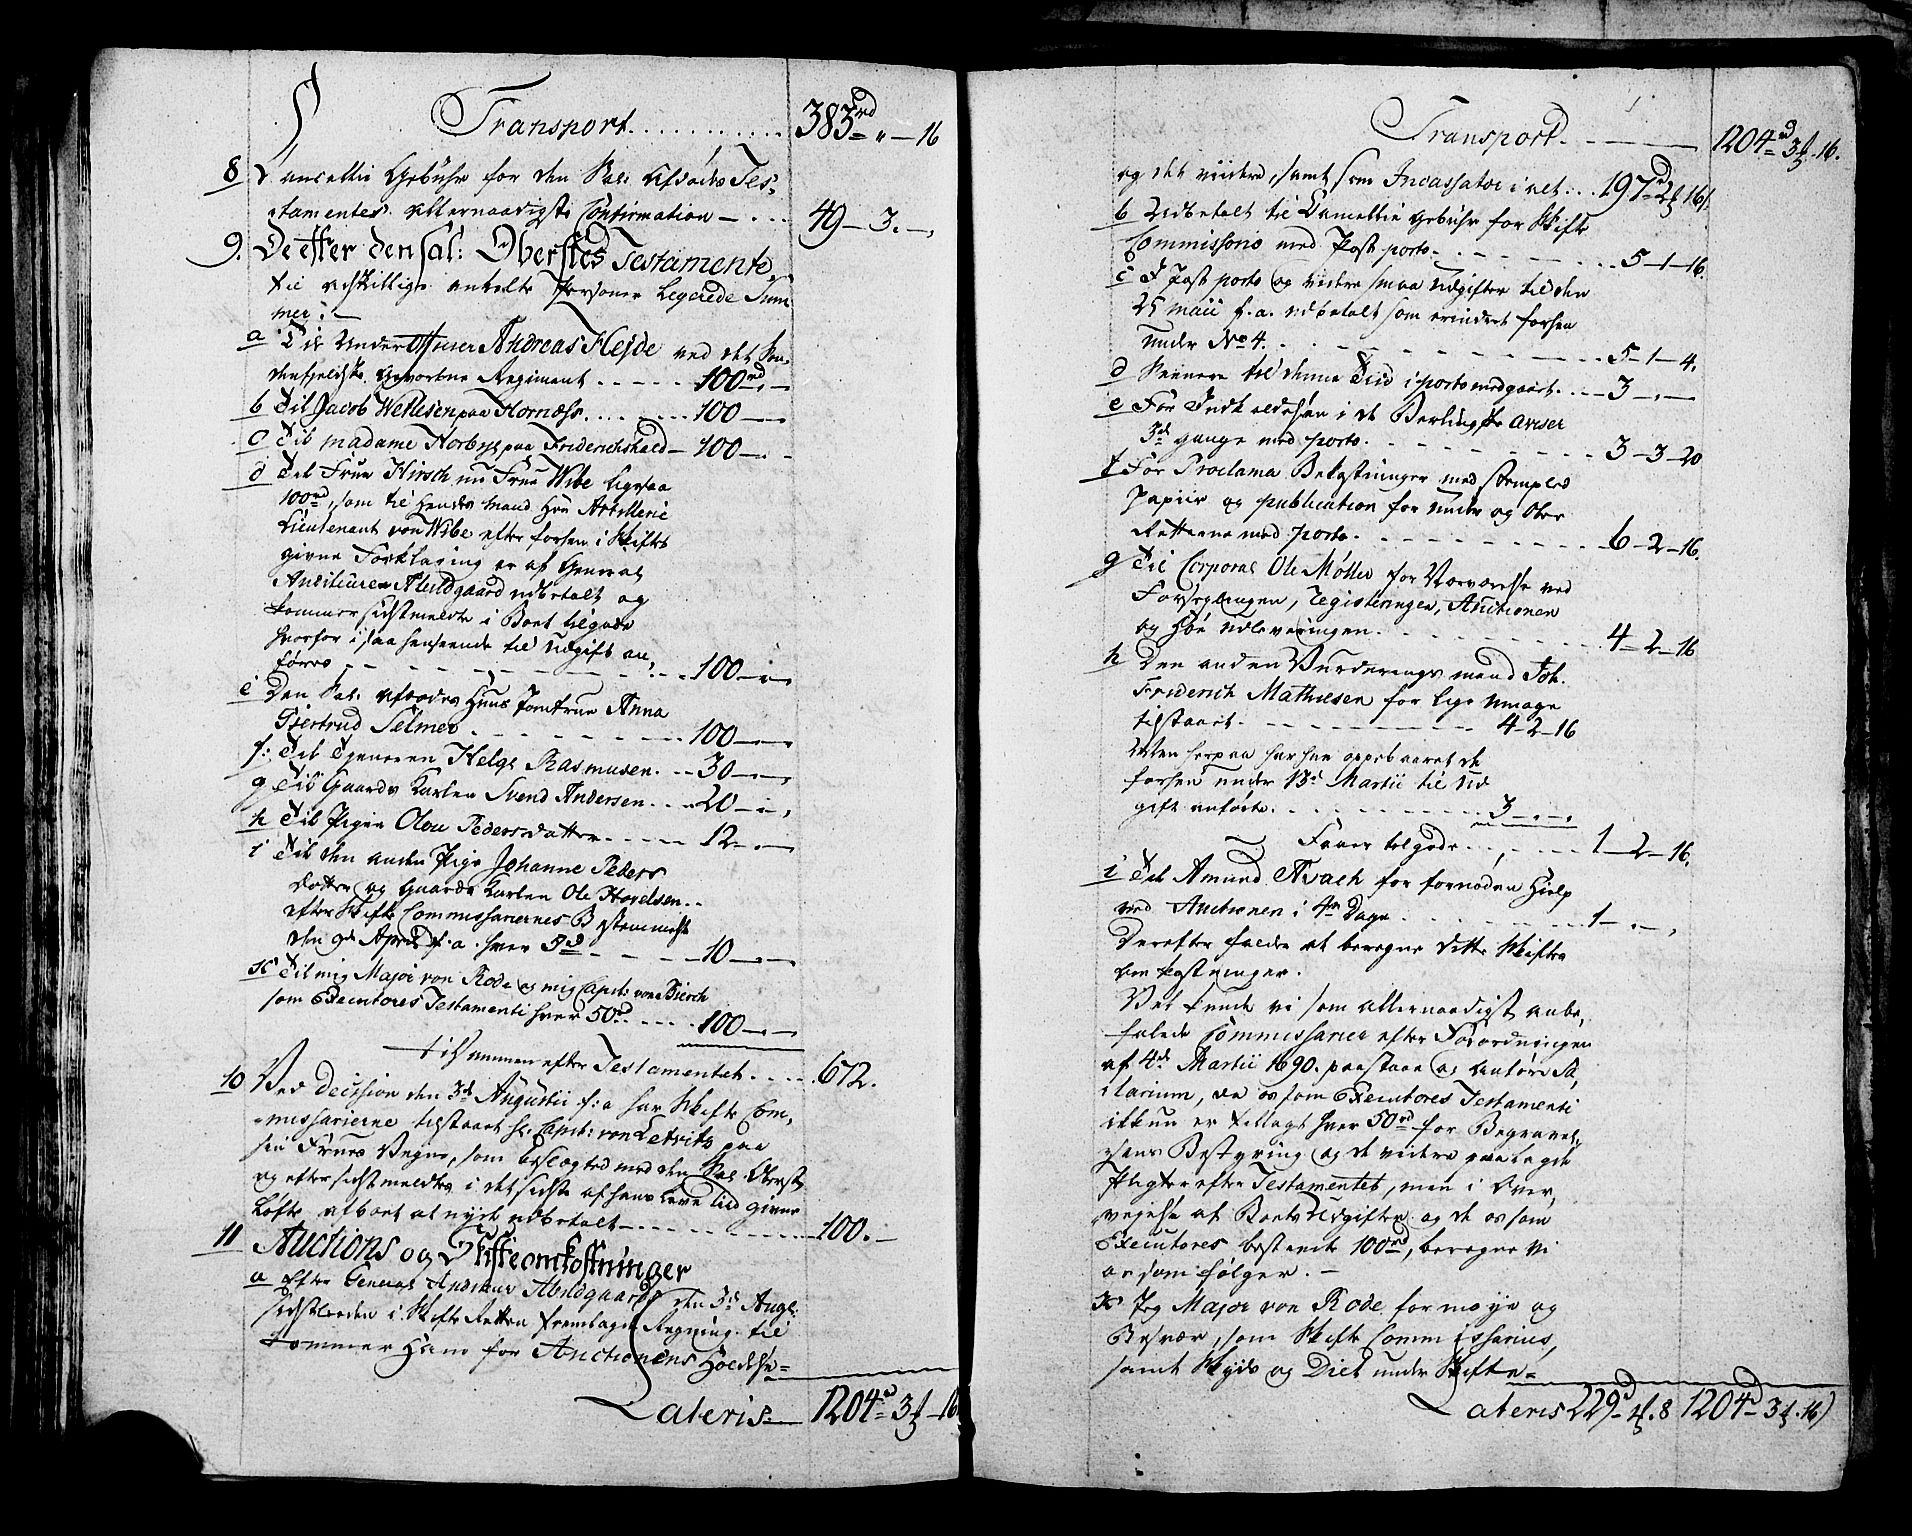 Transport. . . . . . . . . . . 383rd " — 16
8 Cancellie Gebühr for den Sal: Afdødes Tes-
tamentes allernaadigste Confirmation — . . . 49 — 3. —,
9. De efter den sal: Oberstes Testamente
til adskillige andre Personer Legerede Sum
mer: —
a Til Under Officer Andreas Hejde ved det Søn-
denfieldske Gevorbne Regiment - - - - - - 100rd. —
b Til Jacob Wetlesen paa Hornæss. . . . . . . . 100 —
c Til madame Norbye paa Friderichshald — 100 — . -
d Til Frue Hirsch nu Frue Wibe Ligesaa
100rd, som til Hendes Mand Hr Artillerie
Lieutenant von Wibe efter forhen i Skiftet
givne Forklaring er af General
Auditeuren Abildgaard udbetalt og
kommer sidstmeldte i Boet tilgode
hvorfor i saa henseende til Udgift an,
føres - - - - - - - - - - 100 - . -,
e Den Sal: Afdødes Huus Jomfrue Anna
Giertrud Selmer - - - - - - - - - 100 — —,
f: Til Tjeneren Helge Rasmusen. - - 30 — —,
g Til Gaards Karlen Svend Andersen. . . . 20 — . —,
h Til Pigen Olou Pedersdatter - - - - - 12 - . —
i Til den anden Pige Johanne Peders
datter og Gaards Karlen Ole Havelsen. .
efter Skifte Commissariernes Bestemmelse
den 9de April f: a. hver 5rd - - - - - 10 — . —
K Til mig Major von Rode og mig Capt: von Tiersch
som Executores Testamenti hver 50rd. - - - - 100 — . —
tilsammen efter Testamentet. . . . . 672.
10 Ved Decision den 3de Augustii f: a har Skifte Com,
missarierne tilstaaet Hr Capt: von Letvitz paa
sin Frues Vegne, som beslægted med den Sal: Oberst
og efter sidstmeldtes i det sidste af hans Leve tiid givne
Løfte afboet at nyde udbetalt — . . . . . . . . . . . 100. —
11 Auctions og Skifteomkostninger
a Efter General Auditeur Abildgaards den 3de Aug:
sidstleden i Skifte Retten fremlagde Regning til
kommer Ham for Auctionens Holdelse =
Lateris — 1204rd 3ß — 16
Transport. - —— 1204rd 3ß - 16.
og det viidere, samt som Incassator i alt . . . 197rd 2ß 16ß
b Udbetalt til Cancellie Gebühr for Skifte
Commissorio med Post porto. - - - - - . . . 5 - 1 - 16.
c I Post porto og andre smaa Udgifter til den
25 maii f. a. udbetalt som erindret forhen
under No 4. - - - - - - - - - - 5 — 1 — 4.
d Sennere til denne Tiid i porto medgaaet. . . . 3 —. —
e For Indkaldelsen i de Berlingske Aviser
3de gange med porto. - - - - - - - - 3 — 3 — 20
f For Proclama Bekostninger med stemplet
papiir og publication for under og Over
Retterne med porto. - - - - - - - - - 6 — 2 — 16.
g Til Corporal Ole Møller for Nærværelse ved
Forseglingen, Registeringen, Auctionen
og Høe udleveringen. - - - - - - - - . . 4 = 2 — 16
h Den anden Vurderings mand Joh:
Friderich Mathiesen for lige Umage
tilstaaet. - - - - - - - - - 4 - 2 - 16
Men herpaa har han oppebaaret de
forhen under 13de Martii til Ud
gift anførte. - - - - - - - - - 3 — . — .
Faaer tilgode. . . , - - - 1 — 2 — 16.
i Til Amund Avach for fornøden Hielp
ved Auctionen i 4re Dage. - - - - - - - - - 1 — . —,
Derefter falder at beregne dette Skiftes
bekostninger.
Vel kunde vi som allernaadigst anbe,
falede Commissarier efter Forordningen
af 4de Martii 1690. paastaae og anføre Sa,
larium, da os som Executores Testamenti
ikkun er tillagt hver 50rd for Begravel,
sens Bestyring og de videre paalagde
Pligter efter Testamentet, men i Over,
vejelse af Boets Udgifter og de os som
Executores bestemte 100rd, beregne Vi
os som følger. —
K Jeg Major von Rode for møye og
Besvær, som Skifte Commissarius,
samt Skyds og Diet under Skifte =
Lateris 229rd 4ß. 8 1204rd 3ß. 16)